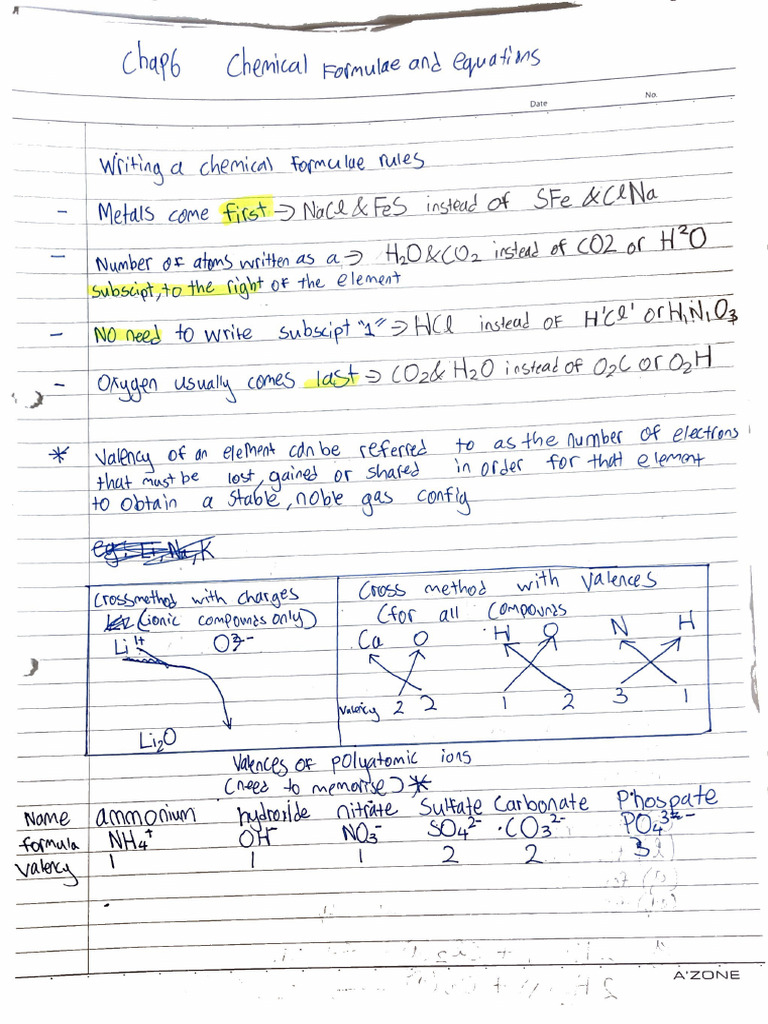 Chap6 Chemical Formulae and equations
Date No.
Writing a chemical formulae rules
- Metals come first → NaCl & FeS instead of SFe & ClNa
- Number of atoms written as a → H₂O & CO₂ instead of CO2 or H²O
subscipt, to the right of the element
- NO need to write subscipt "1" ⇒ HCl instead of H'Cl' or H₁N₁O₃
- Oxygen usually comes last → CO₂ & H₂O instead of O₂C or O₂H
* Valency of an element can be referred to as the number of electrons
that must be lost, gained or shared in order for that element
to obtain a stable, noble gas config
eg: Li, Na, K
Crossmethod with charges
(ionic compounds only)
Li¹⁺ O²⁻
Li₂O
Cross method with Valences
(for all compounds
Ca O H O N H
Valency 2 2 1 2 3 1
Valences of polyatomic ions
(need to memorise) *
Name ammonium hydroxide nitrate Sulfate Carbonate Phospate
formula NH₄⁺ OH⁻ NO₃⁻ SO₄²⁻ CO₃²⁻ PO₄³⁻
Valency 1 1 1 2 2 3
A'ZONE